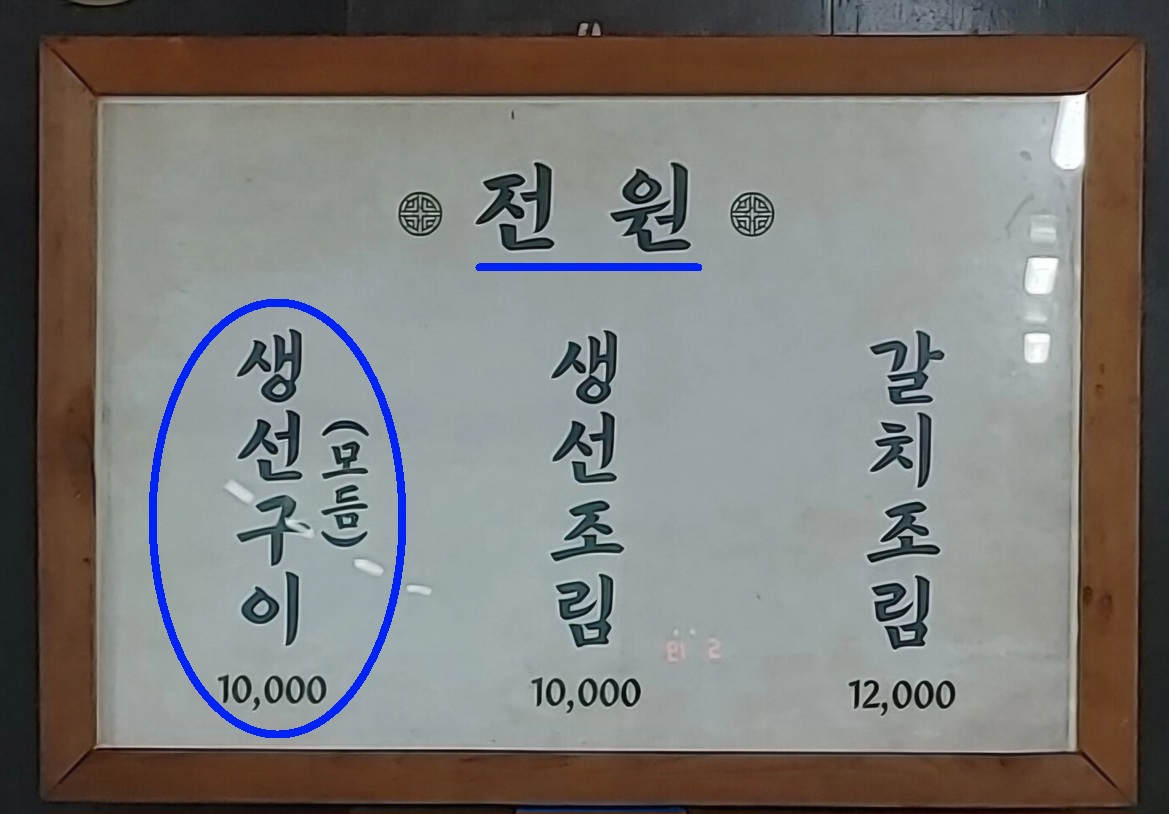 전 원
생선구이
(모듬)
10,000
생선조림
10,000
갈치조림
12,000